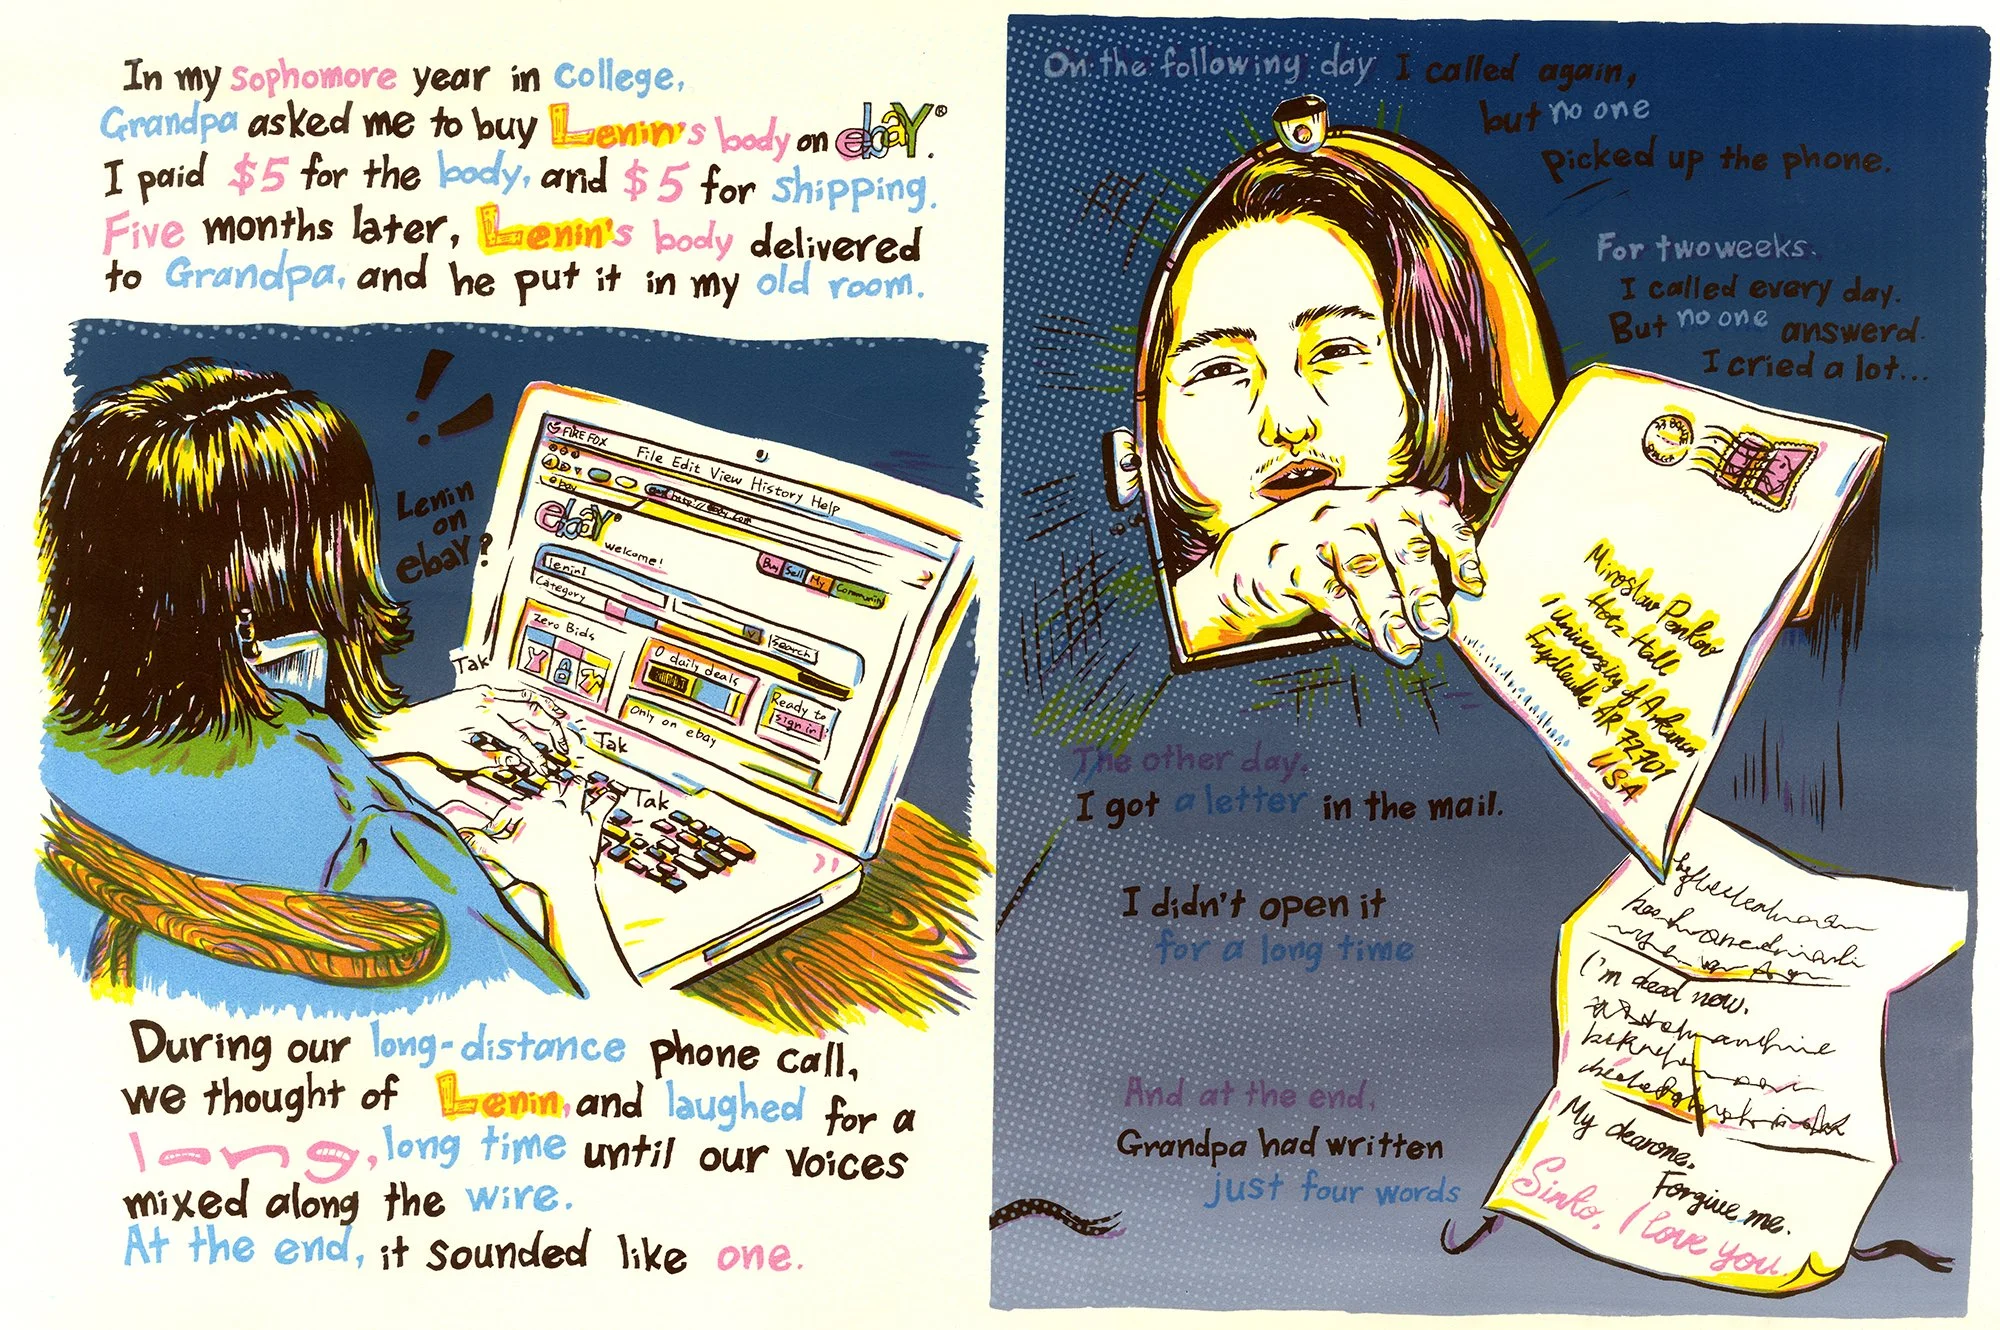 In my sophomore year in college,
Grandpa asked me to buy Lenin's body on ebaY®.
I paid $5 for the body, and $5 for shipping.
Five months later, Lenin's body delivered
to Grandpa, and he put it in my old room.
Lenin
on
ebaY?
FIRE FOX
File Edit View History Help
ebay
ebaY®
welcome!
Buy Sell My Community
lenin
Category
search
Zero Bids
0 daily deals
Ready to
sign in
Only on ebay
Tak
Tak
Tak
During our long-distance phone call,
we thought of Lenin, and laughed for a
long, long time until our voices
mixed along the wire.
At the end, it sounded like one.
On the following day I called again,
but no one
picked up the phone.
For two weeks.
I called every day.
But no one answerd.
I cried a lot...
Miroslav Penkov
Hotz Hall
1 University of Arkansas
AR 72701
USA
The other day,
I got a letter in the mail.
I didn't open it
for a long time
And at the end,
Grandpa had written
just four words
I'm dead now.
My dearone.
Forgive me.
Sinko, I love you.